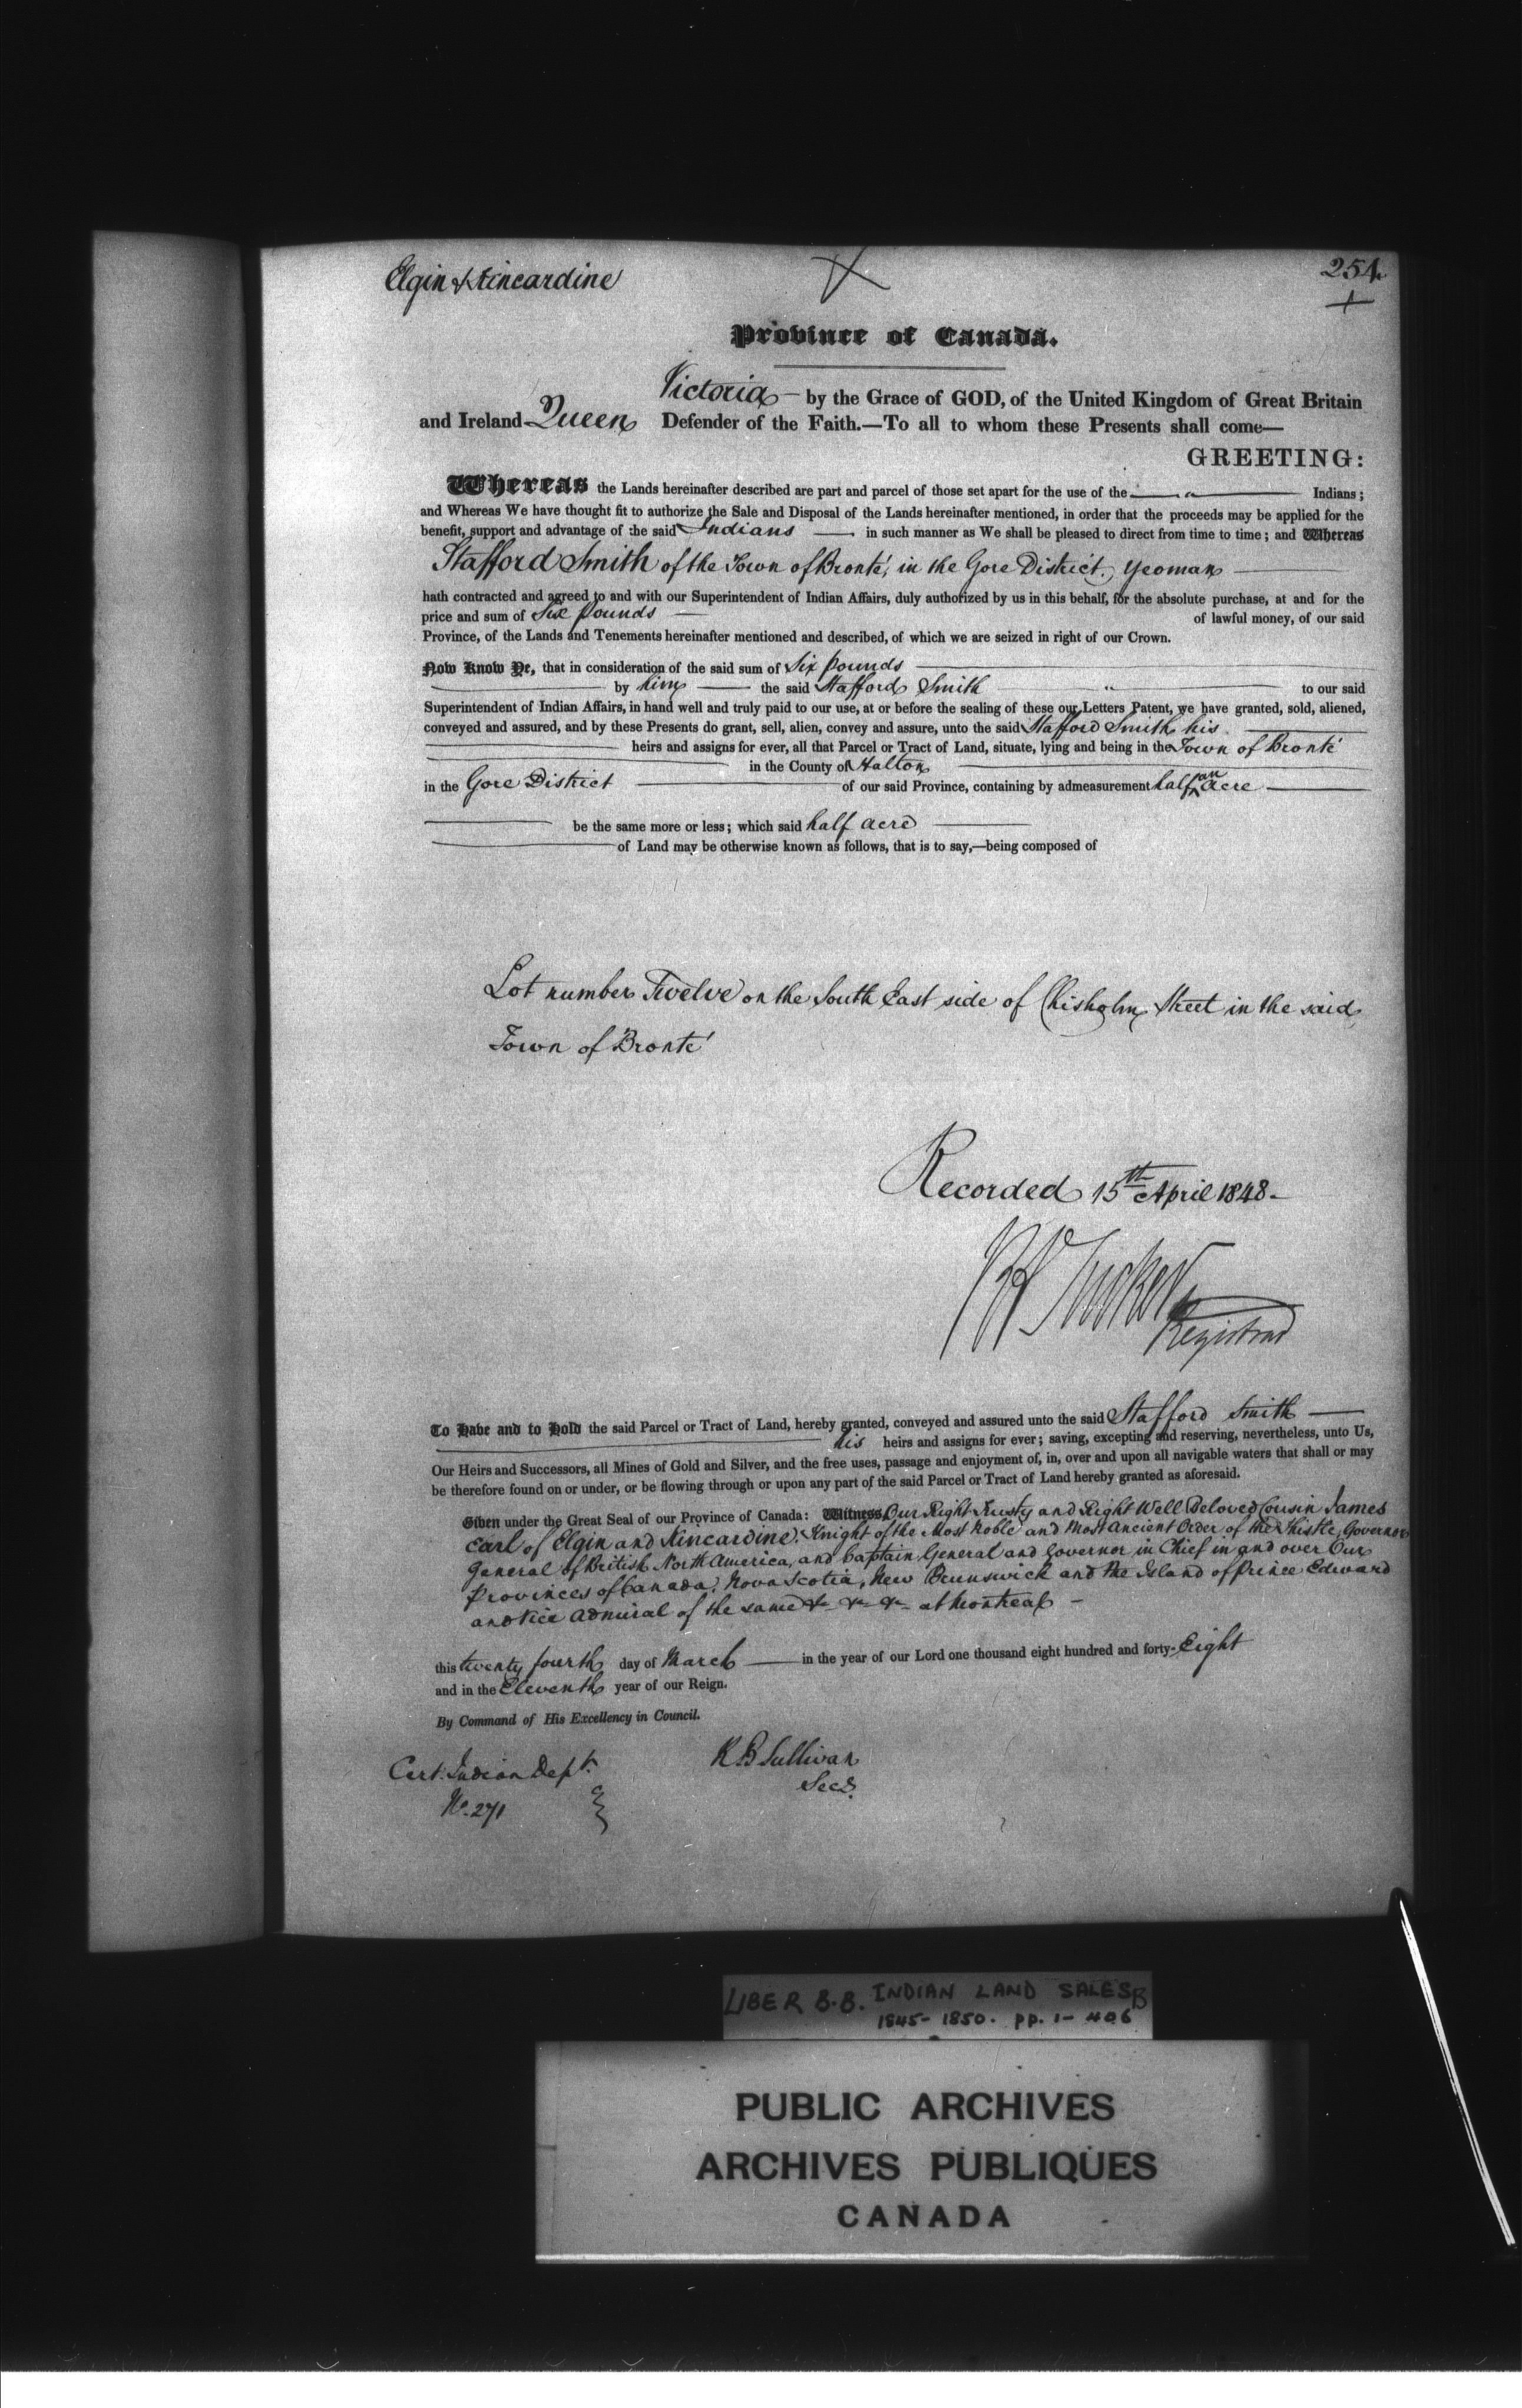 Elgin & Kincardine
254
Province of Canada.
Victoria by the Grace of GOD, of the United Kingdom of Great Britain
and Ireland Queen Defender of the Faith.—To all to whom these Presents shall come—
GREETING:
Whereas the Lands hereinafter described are part and parcel of those set apart for the use of the Indians;
and Whereas We have thought fit to authorize the Sale and Disposal of the Lands hereinafter mentioned, in order that the proceeds may be applied for the
benefit, support and advantage of the said Indians in such manner as We shall be pleased to direct from time to time; and Whereas
Stafford Smith of the Town of Bronté, in the Gore District, Yeoman
hath contracted and agreed to and with our Superintendent of Indian Affairs, duly authorized by us in this behalf, for the absolute purchase, at and for the
price and sum of Six pounds of lawful money, of our said
Province, of the Lands and Tenements hereinafter mentioned and described, of which we are seized in right of our Crown.
Now Know Ye, that in consideration of the said sum of Six pounds
by him the said Stafford Smith to our said
Superintendent of Indian Affairs, in hand well and truly paid to our use, at or before the sealing of these our Letters Patent, we have granted, sold, aliened,
conveyed and assured, and by these Presents do grant, sell, alien, convey and assure, unto the said Stafford Smith his
heirs and assigns for ever, all that Parcel or Tract of Land, situate, lying and being in the Town of Bronté
in the County of Halton
in the Gore District of our said Province, containing by admeasurement half an acre
be the same more or less; which said half acre
of Land may be otherwise known as follows, that is to say,—being composed of
Lot number Twelve on the South East side of Chisholm Street in the said
Town of Bronté
Recorded 15th April 1848
Tucker
Registrar
To Have and to Hold the said Parcel or Tract of Land, hereby granted, conveyed and assured unto the said Stafford Smith
his heirs and assigns for ever; saving, excepting and reserving, nevertheless, unto Us,
Our Heirs and Successors, all Mines of Gold and Silver, and the free uses, passage and enjoyment of, in, over and upon all navigable waters that shall or may
be therefore found on or under, or be flowing through or upon any part of the said Parcel or Tract of Land hereby granted as aforesaid.
Given under the Great Seal of our Province of Canada: Witness, Our Right Trusty and Right Well Beloved Cousin James
Earl of Elgin and Kincardine, Knight of the Most Noble and Most Ancient Order of the Thistle, Governor
General of British North America, and Captain General and Governor in Chief in and over Our
Provinces of Canada, Nova Scotia, New Brunswick and the Island of Prince Edward
and Vice Admiral of the same &c &c &c at Montreal
this twenty fourth day of March in the year of our Lord one thousand eight hundred and forty-Eight
and in the Eleventh year of our Reign.
By Command of His Excellency in Council.
Cert. Indian Dept.
No. 271
R B Sullivan
Secy.
LIBER B.B. INDIAN LAND SALES B
1845-1850. pp. 1-406
PUBLIC ARCHIVES
ARCHIVES PUBLIQUES
CANADA